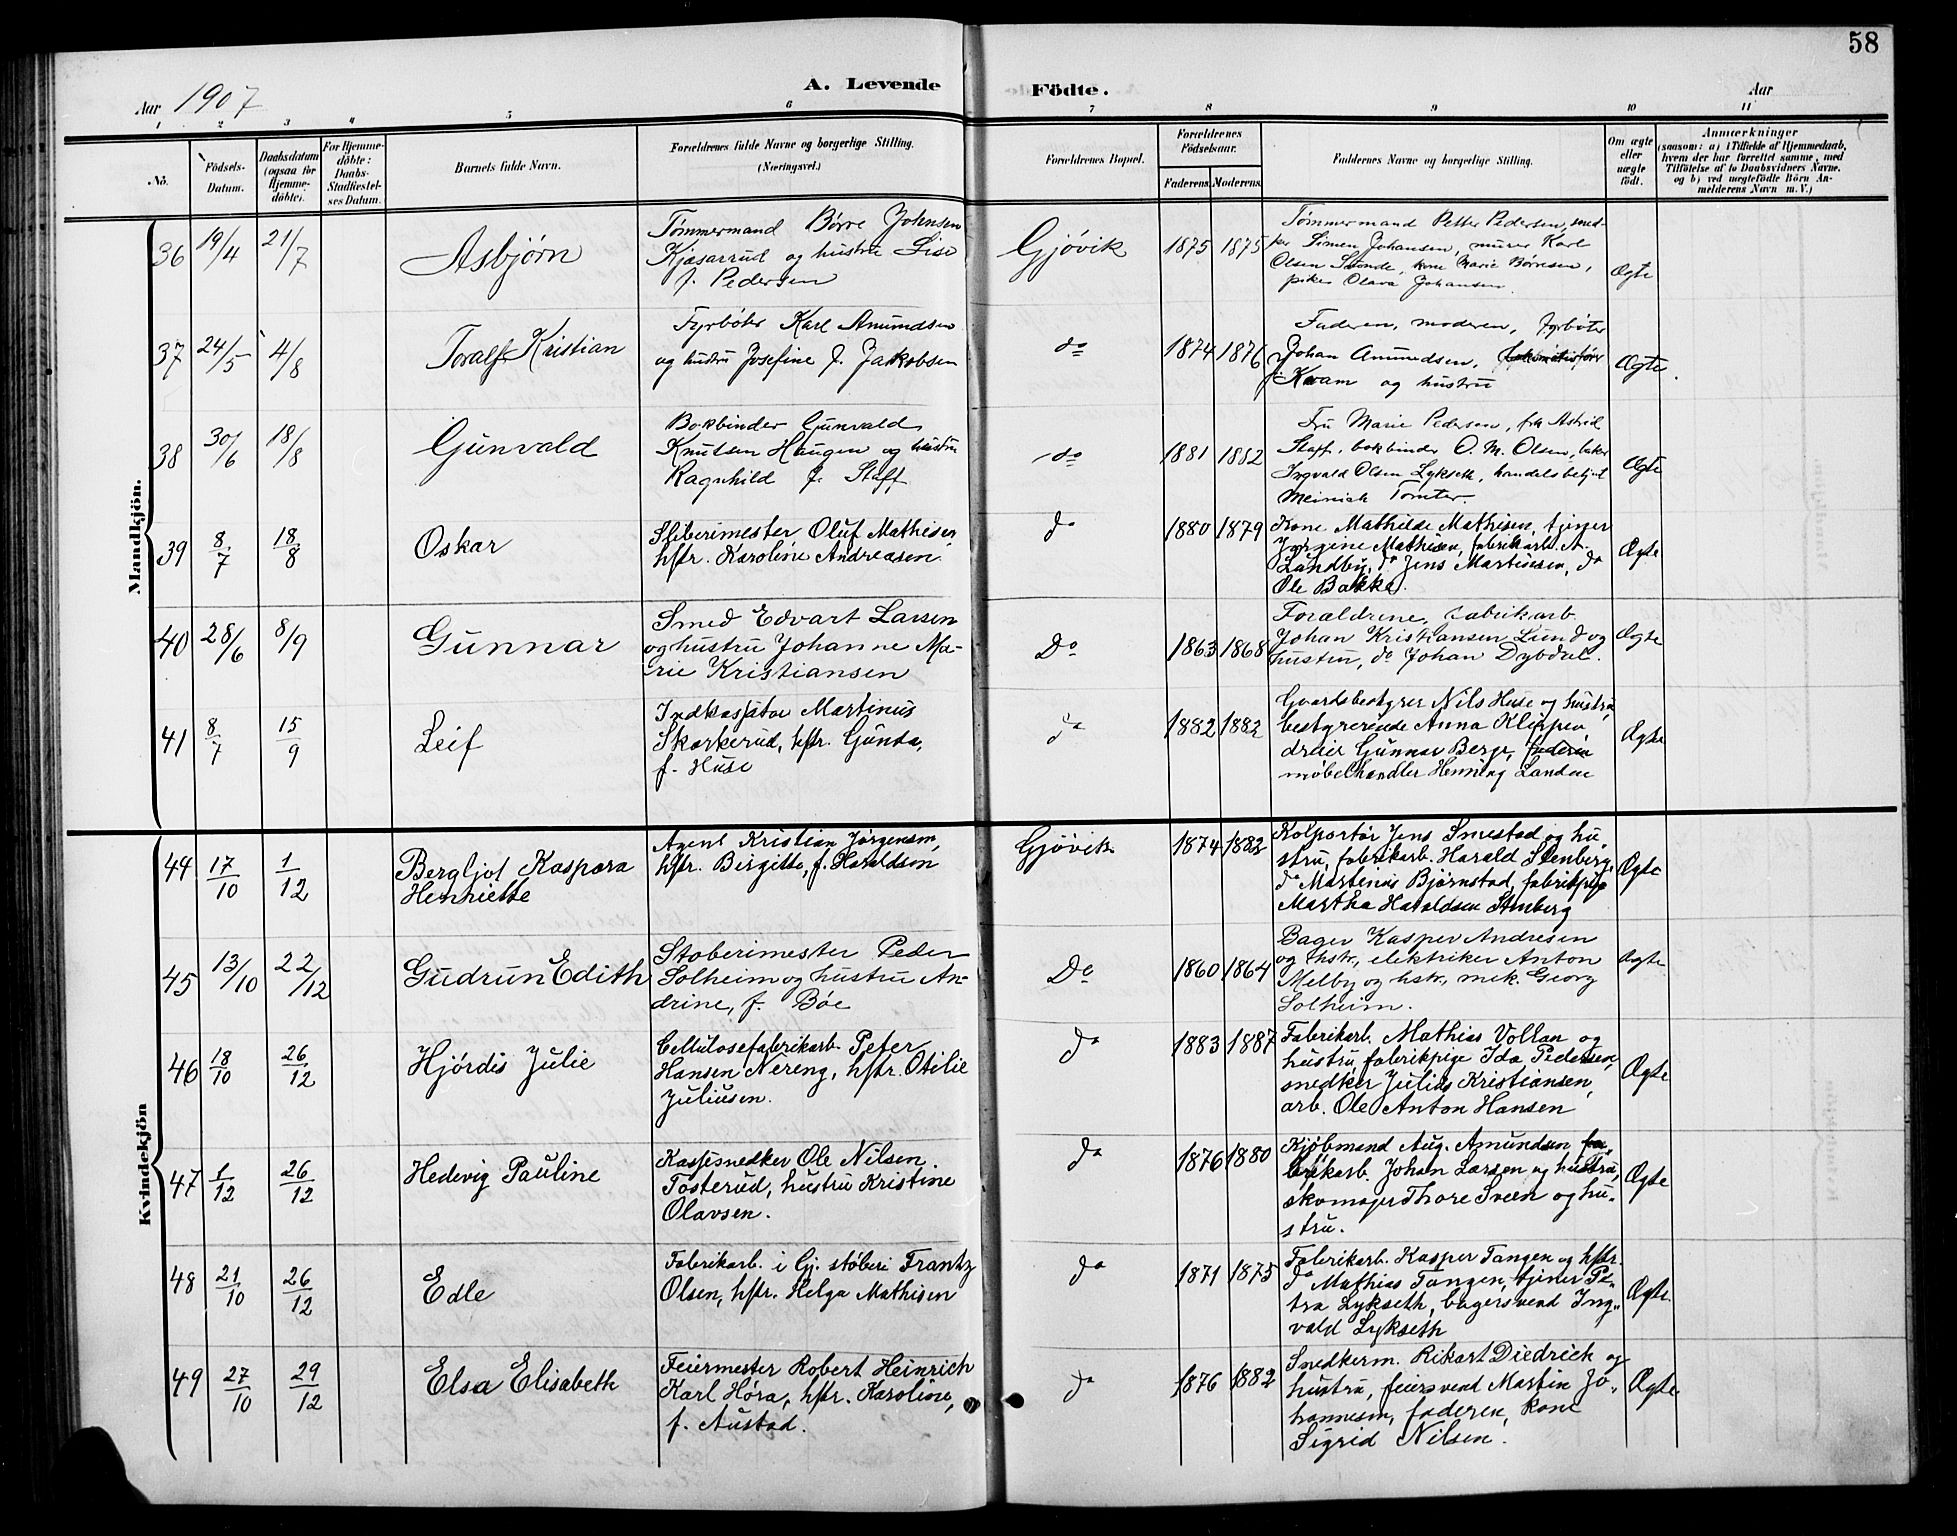 58
Aar 1907
A. Levende Födte.
Aar
1 2 3 4 5 6 7 8 9 10 11
No.
Födsels-Datum.
Daabsdatum (ogsaa for Hjemme-döbte).
For Hjemme-döbte: Daabs-Stadfæstel-ses Datum.
Barnets fulde Navn.
Forældrenes fulde Navne og borgerlige Stilling.
(Næringsvei.)
Forældrenes Bopæl.
Forældrenes Födselsaar.
Faderens. Moderens.
Faddernes Navne og borgerlige Stilling.
Om ægte eller uægte födt.
Anmærkninger
(saasom: a) i Tilfælde af Hjemmedaab, hvem der har forrettet samme, med Tilföielse af to Daabsvidners Navne, og b) ved uægtefödte Börn An-melderens Navn m. V.)
Mandkjön.
36 19/4 21/7 Asbjørn
Tømmermand Børre Johnsen
Kjøsarrud og hustru Lise
f. Pedersen
Gjøvik 1875 1875
Tømmermand Petter Pedersen, sned-
ker Simen Johansen, murer Karl
Olsen Stonde, kone Marie Børresen,
pike Olava Johansen.
Ægte
37 24/5 4/8 Toralf Kristian
Fyrbøter Karl Amundsen
og hustru Josefine f. Jakobsen
do 1874 1876
Faderen, moderen, fyrbøter
Johan Amundsen,
Kvam og hustru
Ægte.
38 30/6 18/8 Gunvald
Bokbinder Gunvald
Knutsen Haugen og hustru
Ragnhild f. Staff
do 1881 1882
Fru Marie Pedersen, frk Astrid
Staff, bokbinder O. M. Olsen, baker
Ingvald Olsen Lykseth, handelsbetjent
Meinich Tomter.
Ægte
39 8/7 18/8 Oskar
Sliberimester Oluf Mathisen
hstr. Karoline Andreasen
do 1880 1879
Kone Mathilde Mathisen, tjener
Jørgine Mathisen, fabrikarb. A.
Lundby, do Jens Martinsen, do
Ole Bakke.
Ægte
40 28/6 8/9 Gunnar
Smed Edvart Larsen
og hustru Johanne Ma-
rie Kristiansen
Do 1863 1868
Forældrene, fabrikarb.
Johan Kristiansen Lund og
hustru, do Johan Dybdal.
Ægte
41 8/7 15/9 Leif
Indkassator Martinus
Skarkerud, hstr. Gunda,
f. Huse
do 1882 1882
Gaardsbestyrer Nils Huse og hustru,
bestyrerinde Anna Klippen
dreier Gunnar Berge, faderen
møbelhandler Henning Landem
Ægte
Kvindekjön
44 17/10 1/12 Bergljot Kaspara
Henriette
Agent Kristian Jørgensen,
hstr. Birgitte, f. Haraldsen
Gjøvik 1874 1882
Kolportør Jens Smestad og hu-
stru, fabrikarb. Harald Stenberg,
do Martinus Bjørnstad, fabrikpige
Martha Haraldsen Stenberg
Ægte
45 13/10 22/12 Gudrun Edith
Støberimester Peder
Solheim og hustru An-
drine, f. Bøe
Do 1860 1864
Bager Kasper Andresen
og hstr., elektriker Anton
Melby og hstr., mek. Georg
Solheim.
Ægte
46 18/10 26/12 Hjørdis Julie
Cellulosefabrikarb. Peter
Hansen Nereng, hstr. Otilie
Juliusen.
do 1883 1887
Fabrikarb. Mathias Vollan og
hustru, fabrikpige Ida Pedersen,
snedker Julius Kristiansen,
arb. Ole Anton Hansen
Ægte
47 1/12 26/12 Hedevig Pauline
Kassesnedker Ole Nilsen
Tosterud, hustru Kristine
Olavsen.
do 1876 1880
Kjøbmand Aug. Amundsen fa-
brikarb. Johan Larsen og hustru,
skomager Thore Sveen og hu-
stru.
Ægte
48 21/10 26/12 Edle
Fabrikarb. i Gj. støberi Frantz
Olsen, hstr. Helga Mathisen
do 1871 1875
Fabrikarb. Kasper Tangen og hstr.
do Mathias Tangen, tjener Pe-
tra Lykseth, bagersvend Ing-
vald Lykseth
Ægte.
49 27/10 29/12 Elsa Elisabeth
Feiermester Robert Heinrich
Karl Hóra, hstr. Karoline,
f. Austad.
do 1876 1882
Snedkerm. Rikart Diedrick og
hustru, feiersvend Martin Jo-
hannesen, faderen, kone
Sigrid Nilsen.
Ægte